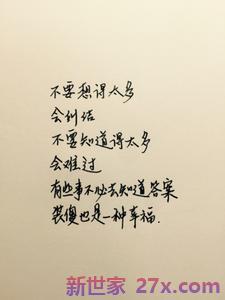 不要想得太多
会纠结
不要知道得太多
会难过
有些事不必去知道答案
装傻也是一种幸福.
新世家 27x.com